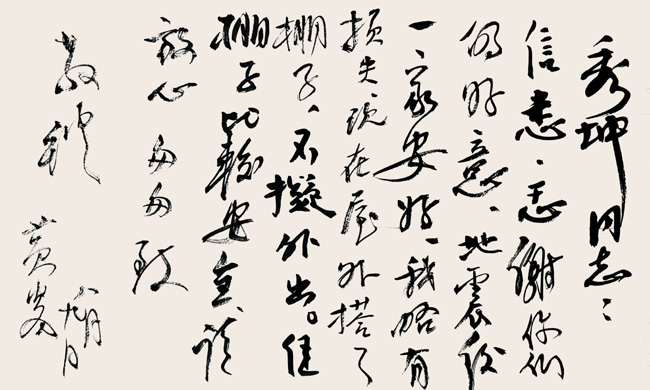 秀坤同志：
信悉、谢你们
的好意、地震后
一家安好、我略有
损失现在屋外搭了
棚子、不擬外出。住
棚子比較安全、请
放心 匆匆致
敬礼
黄